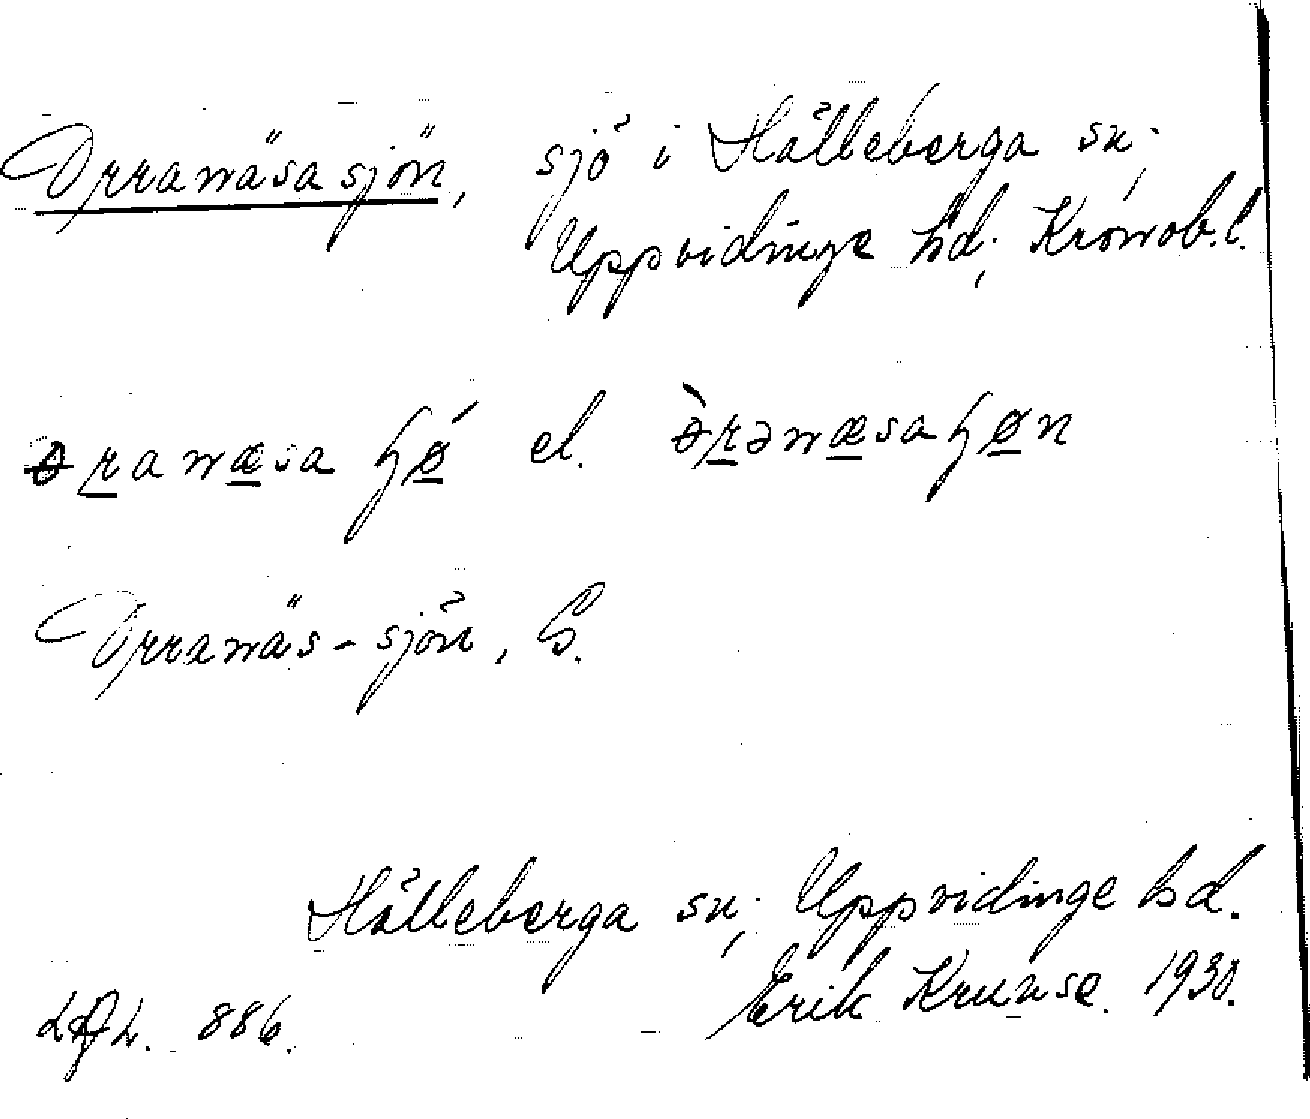 Orranäsasjön, sjö i Hälleberga sn,
Uppvidinge hd, Kronob. l.
ɵr̲anæ̲sa ɧǿ̲ el. ɵ̀r̲ənæ̲saɧø̲n
Orranäs-sjön, G.
Hälleberga sn, Uppvidinge hd.
Erik Kruuse. 1930.
LAL. 886.